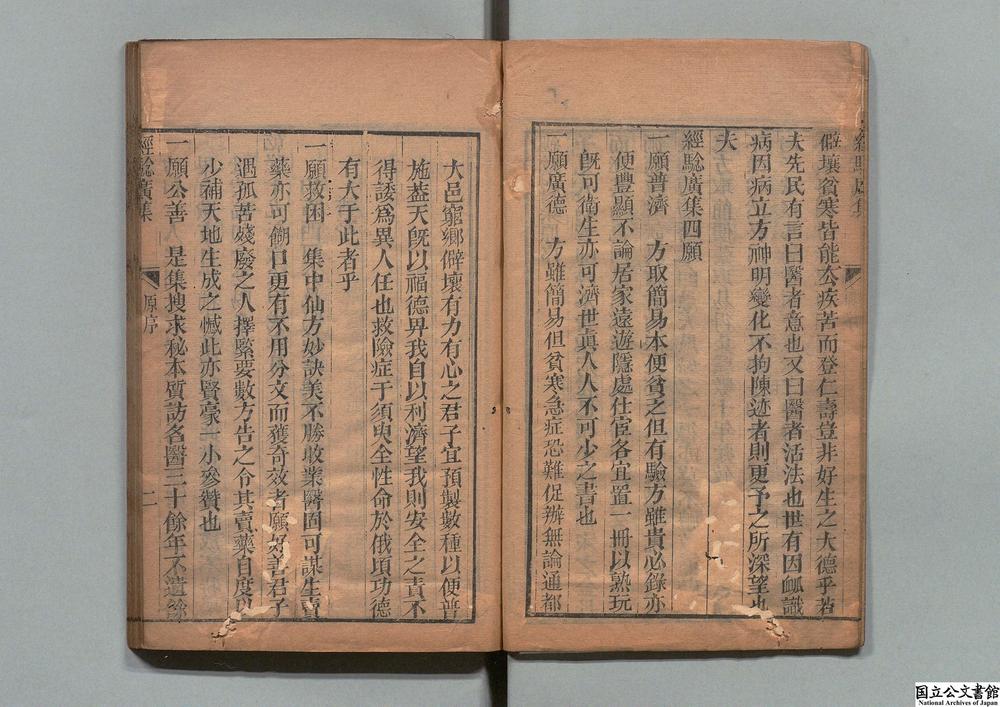 僻壤貧寒皆能去疾苦而登仁壽豈非好生之大德乎若
夫先民有言曰醫者意也又曰醫者活法也世有因証識
病因病立方神明變化不拘陳迹者則更予之所深望也
夫
經驗廣集四願
一願普濟　方取簡易本便貧乏但有驗方雖貴必錄亦
便豐顯不論居家遠遊隱處仕宦各宜置一冊以熟玩
旣可衛生亦可濟世眞人人不可少之書也
一願廣德　方雖簡易但貧寒急症恐難促辦無論通都
大邑窮鄉僻壤有力有心之君子宜預製數種以便普
施葢天旣以福德畀我自以利濟望我則安全之責不
得諉爲異人任也救險症于須臾全性命於俄頃功德
有大于此者乎
一願救困　集中仙方妙訣美不勝收業醫固可謀生賣
藥亦可餬口更有不用分文而獲奇效者願好善君子
遇孤苦殘廢之人擇緊要數方告之令其賣藥自度以
少補天地生成之憾此亦賢豪一小參贊也
一願公善　是集搜求秘本質訪名醫三十餘年不遺餘
經驗廣集
原序
二
国立公文書館
National Archives of Japan